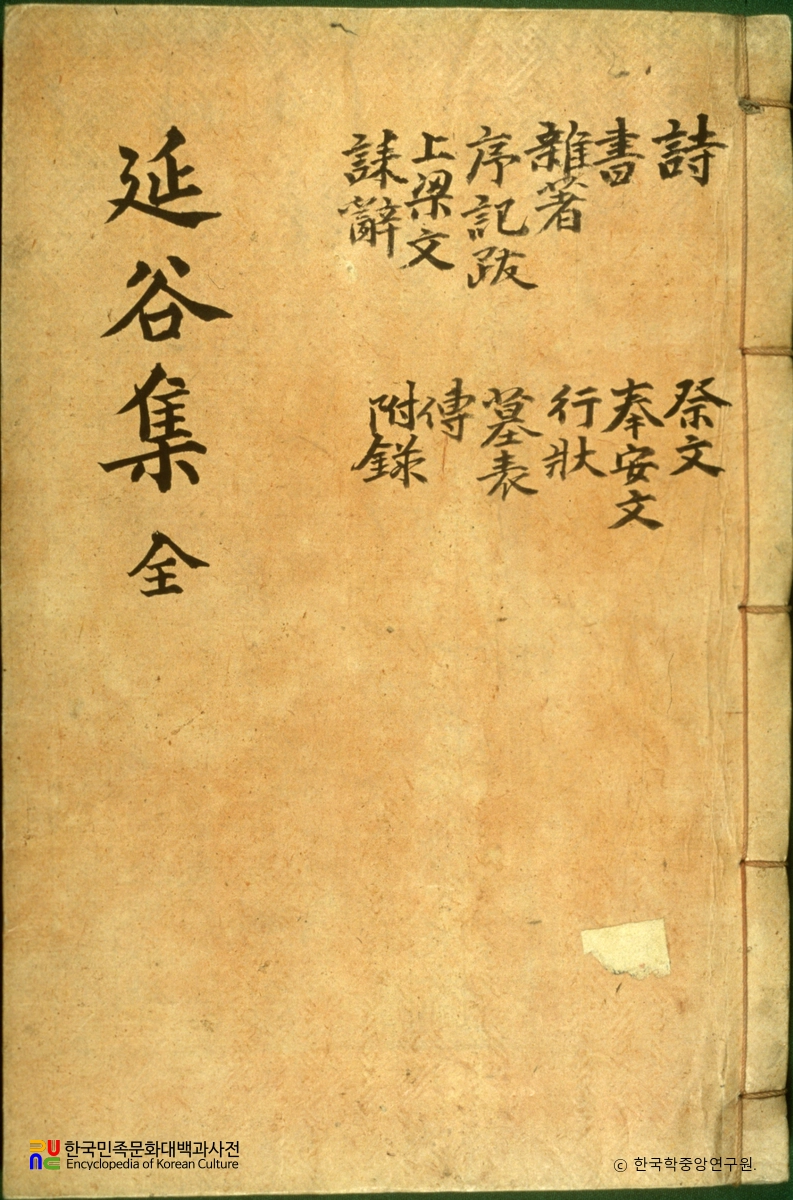 詩
書
雜著
序記跋
上梁文
誄辭
祭文
奉安文
行狀
墓表
傳
附錄
延谷集 全
한국민족문화대백과사전
Encyclopedia of Korean Culture
ⓒ 한국학중앙연구원.